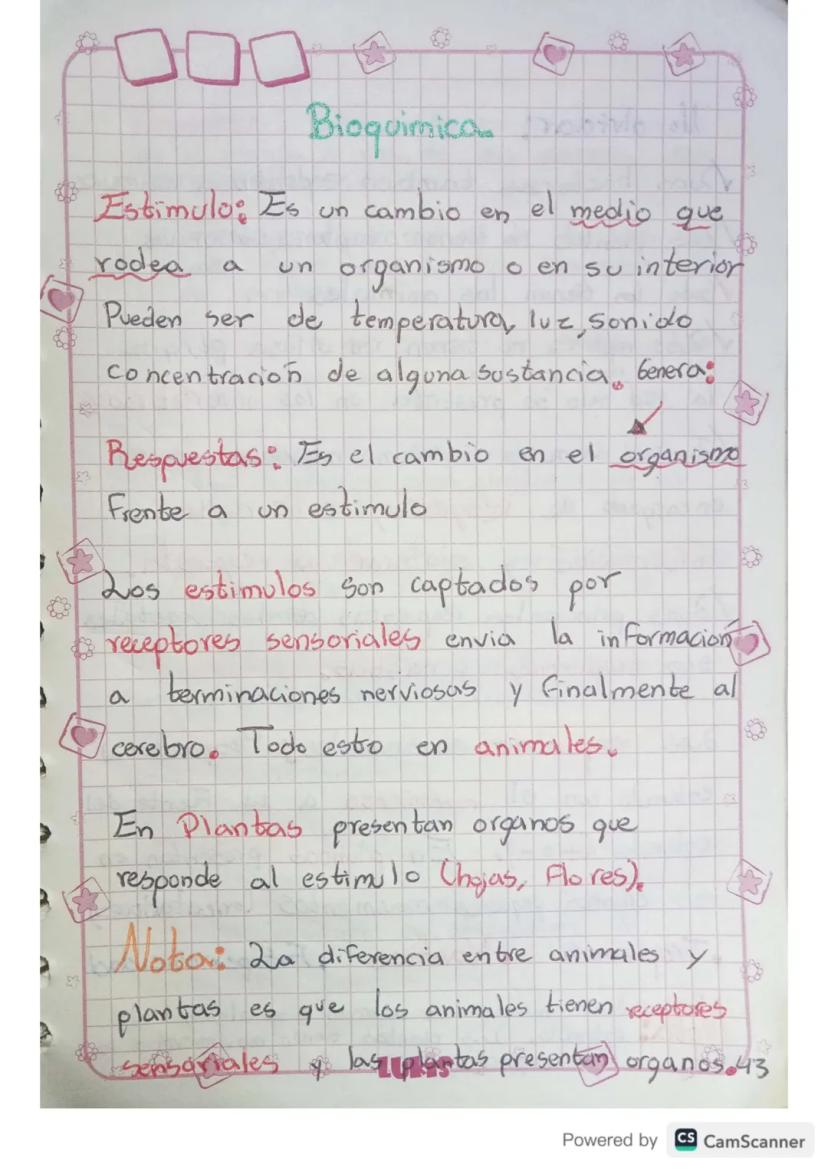 Bioquimica.
Estimulo: Es un cambio en el medio que
rodea a un organismo o en su interior
Pueden ser de temperatura, luz, sonido
concentración de alguna sustancia. Genera:
Respuestas: Es el cambio en el organismo
Frente a un estimulo
Los estimulos son captados por
receptores sensoriales envia la información
a terminaciones nerviosas y finalmente al
cerebro. Todo esto en animales.
En Plantas presentan organos que
responde al estimulo (hojas, Flores).
Nota: La diferencia entre animales y
plantas es que los animales tienen receptores
sensoriales y las plantas presentan organos.
43
Powered by CS CamScanner